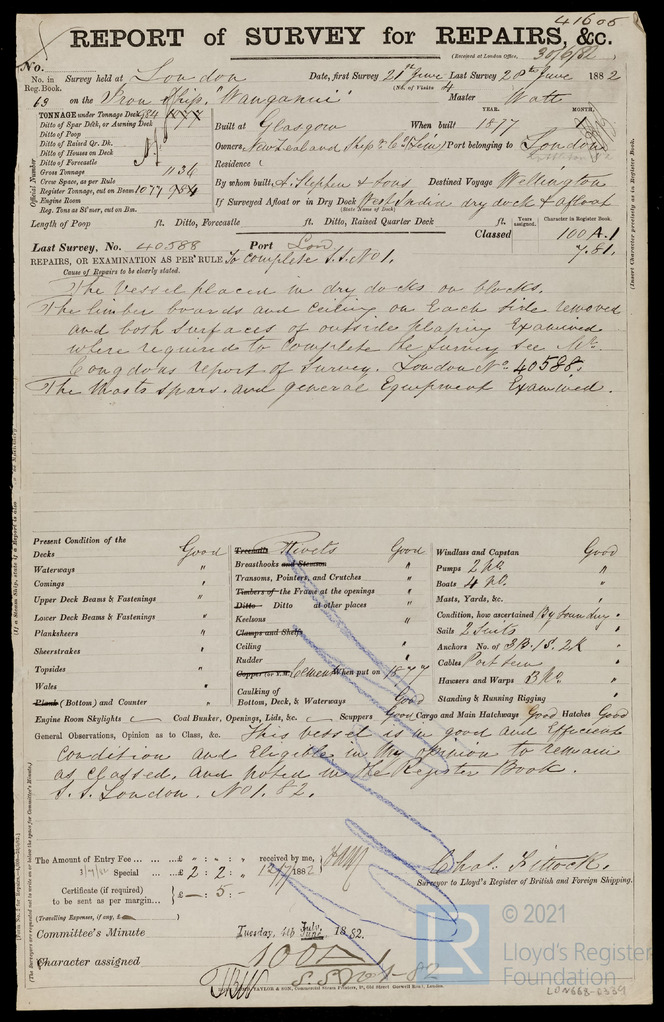 41605
REPORT of SURVEY for REPAIRS, &c.
(Received at London Office, 30/6/82
No.
No. in Reg. Book. Survey held at London Date, first Survey 21st June Last Survey 28th June 1882
(No. of Visits 4
63 on the Iron Ship "Wanganui" Master Watt
TONNAGE under Tonnage Deck 984 1077
Ditto of Spar Ddk, or Awning Deck
Ditto of Poop
Ditto of Raised Qr. Dk.
Ditto of Houses on Deck
Ditto of Forecastle
Gross Tonnage 1136
Crew Space, as per Rule
Register Tonnage, cut on Beam 1077 984
Engine Room
Reg. Tons as St'mer, cut on Bm.
Official Number
YEAR. MONTH.
Built at Glasgow When built 1877
Owners New Zealand Ship Co (Lim) Port belonging to London
Residence
By whom built, A. Stephen & Sons Destined Voyage Wellington
If Surveyed Afloat or in Dry Dock West India dry dock & afloat
(State Name of Dock)
Length of Poop ft. Ditto, Forecastle ft. Ditto, Raised Quarter Deck ft.
Years assigned. Character in Register Book.
Classed 100A.1
7.81.
(Insert Character precisely as in Register Book.
Last Survey, No. 40588 Port Lon
REPAIRS, OR EXAMINATION AS PER RULE To complete S.S. No 1.
Cause of Repairs to be clearly stated.
The Vessel placed in dry docks on blocks.
The limber boards and Ceiling on Each side removed
and both surfaces of outside plating Examined
where required to complete the Survey see Mr.
Congdons report of Survey. London No. 40588.
The Masts spars. and general Equipment Examined.
Present Condition of the
Decks Good
Waterways "
Comings "
Upper Deck Beams & Fastenings "
Lower Deck Beams & Fastenings "
Planksheers "
Sheerstrakes "
Topsides "
Wales "
Plank (Bottom) and Counter "
Treenails Rivets Good
Breasthooks and Stemson "
Transoms, Pointers, and Crutches "
Timbers of the Frame at the openings "
Ditto Ditto at other places "
Keelsons "
Clamps and Shelfs
Ceiling "
Rudder "
Copper (or Y.M. Cement When put on 1877
Caulking of
Bottom, Deck, & Waterways Good
Windlass and Capstan Good
Pumps 2 No. "
Boats 4 No. "
Masts, Yards, &c. "
Condition, how ascertained By sounding "
Sails 2 Suits "
Anchors No. of 3B. 1S. 2K "
Cables "
Hawsers and Warps "
Standing & Running Rigging "
Engine Room Skylights Coal Bunker, Openings, Lids, &c. Scuppers Good Cargo and Main Hatchways Good Hatches Good
General Observations, Opinion as to Class, &c. This vessel is in good and Efficient
Condition and Eligible in my opinion to remain
as classed, and noted in the Register Book.
S.S. London. No 1. 82.
The Amount of Entry Fee ... ... £ " : " : " received by me,
3/7/82 Special ... £ 2 : 2 : " 12/7/1882
Certificate (if required)
to be sent as per margin... £ — : 5 : -
(Travelling Expenses, if any, £
Chas. Fittock.
Surveyor to Lloyd's Register of British and Foreign Shipping.
Committee's Minute Tuesday, 4th July, June, 1882.
Character assigned 100A1
S.S. No 1-82
TAYLOR & SON,
© 2021
LR
Lloyd's Register
Foundation
LON668-6339